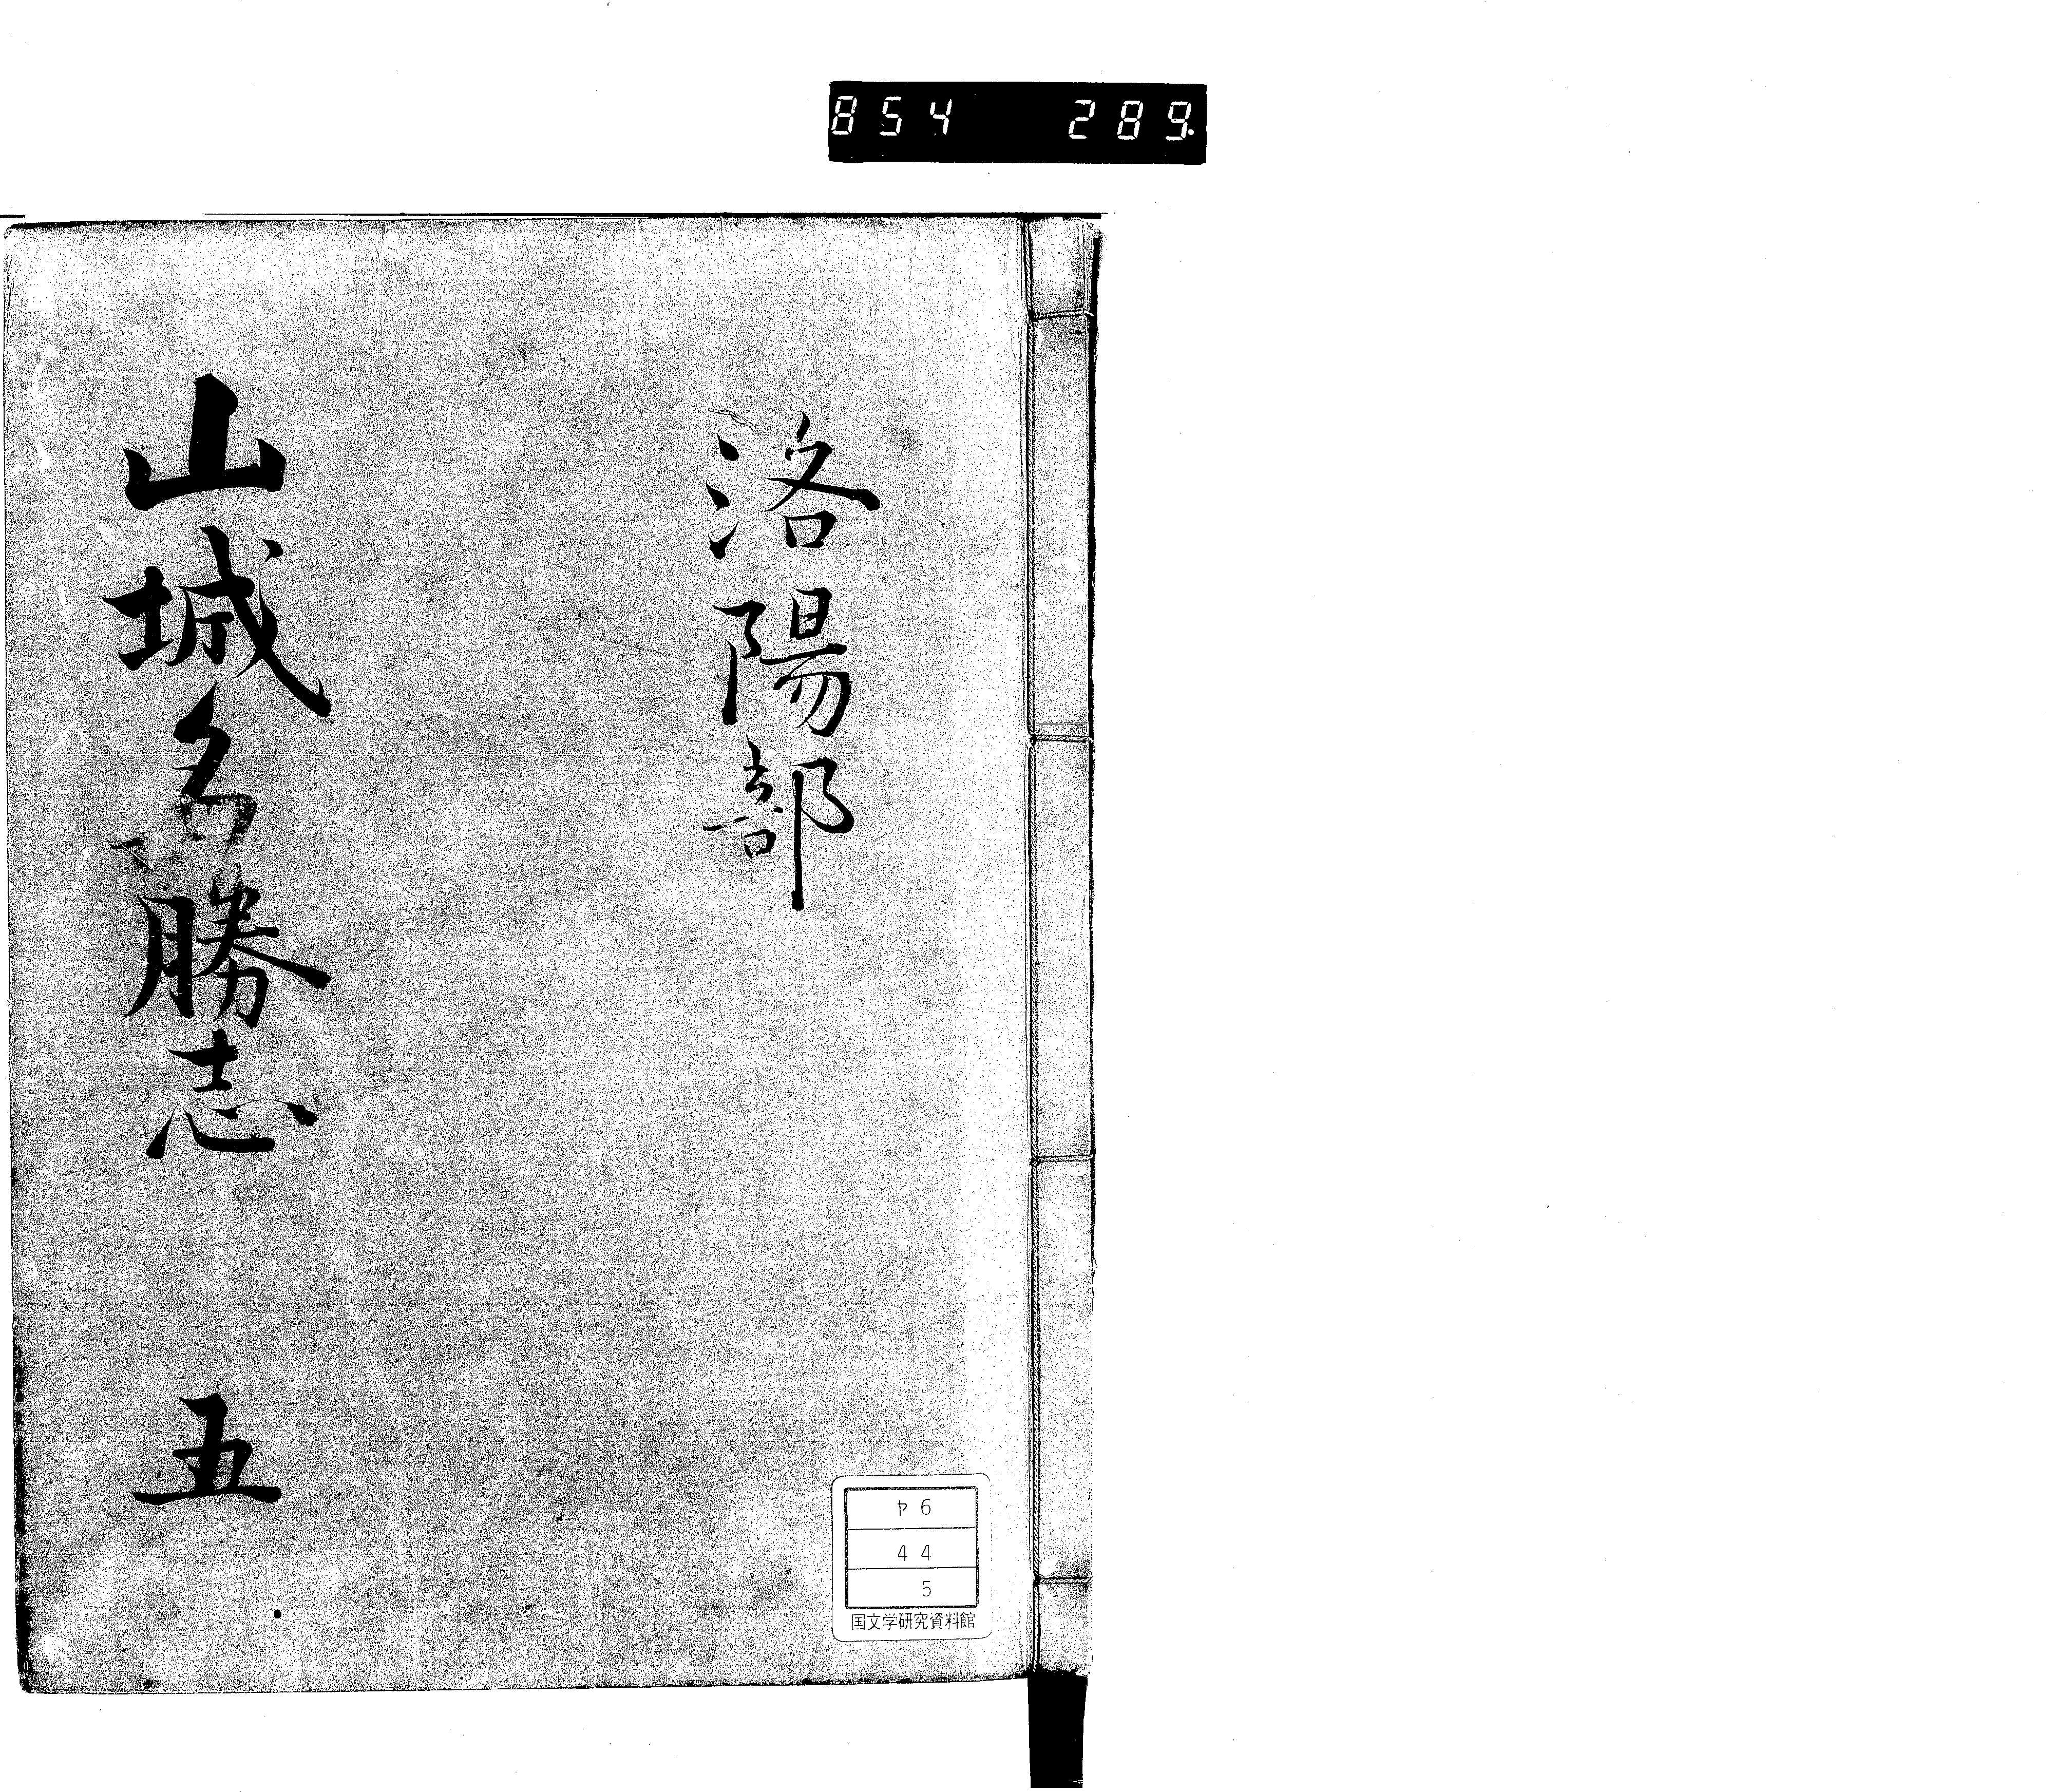 854 289.
洛陽部
山城名勝志 五
ヤ6
44
5
国文学研究資料館